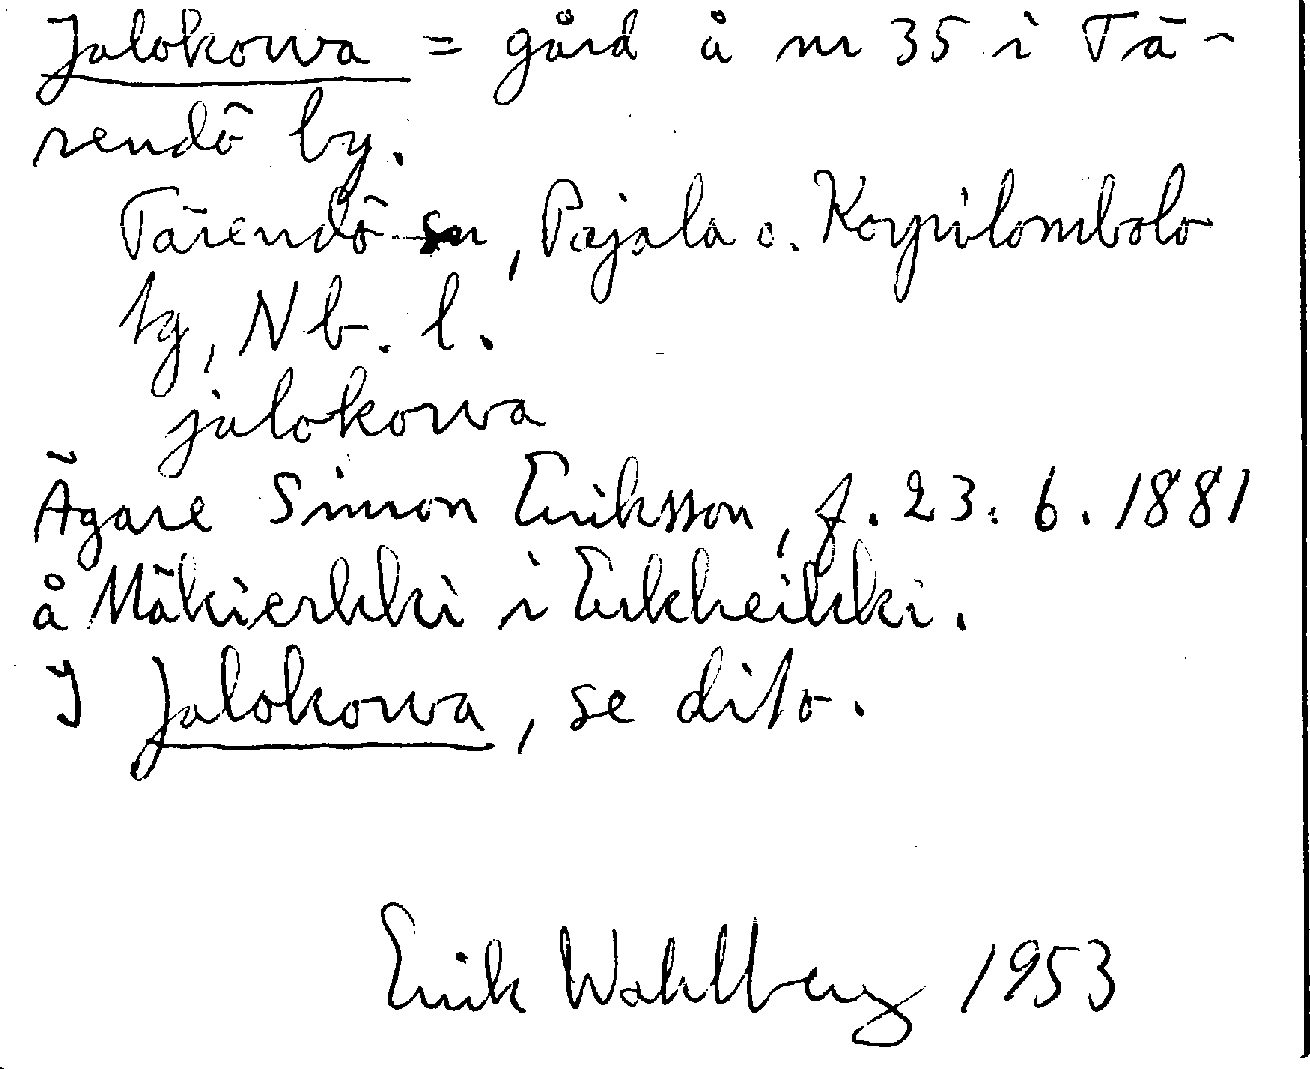 Jalokorva = gård å nr 35 i Tä-
rendö by.
Tärendö sn, Pajala o. Korpilombolo
tg, Nb. l.
jalokorva
Ägare Simon Eriksson, f. 23. 6. 1881
å Mäkierkki i Erkheikki.
I Jalokorva, se dito.
Erik Wahlberg 1953